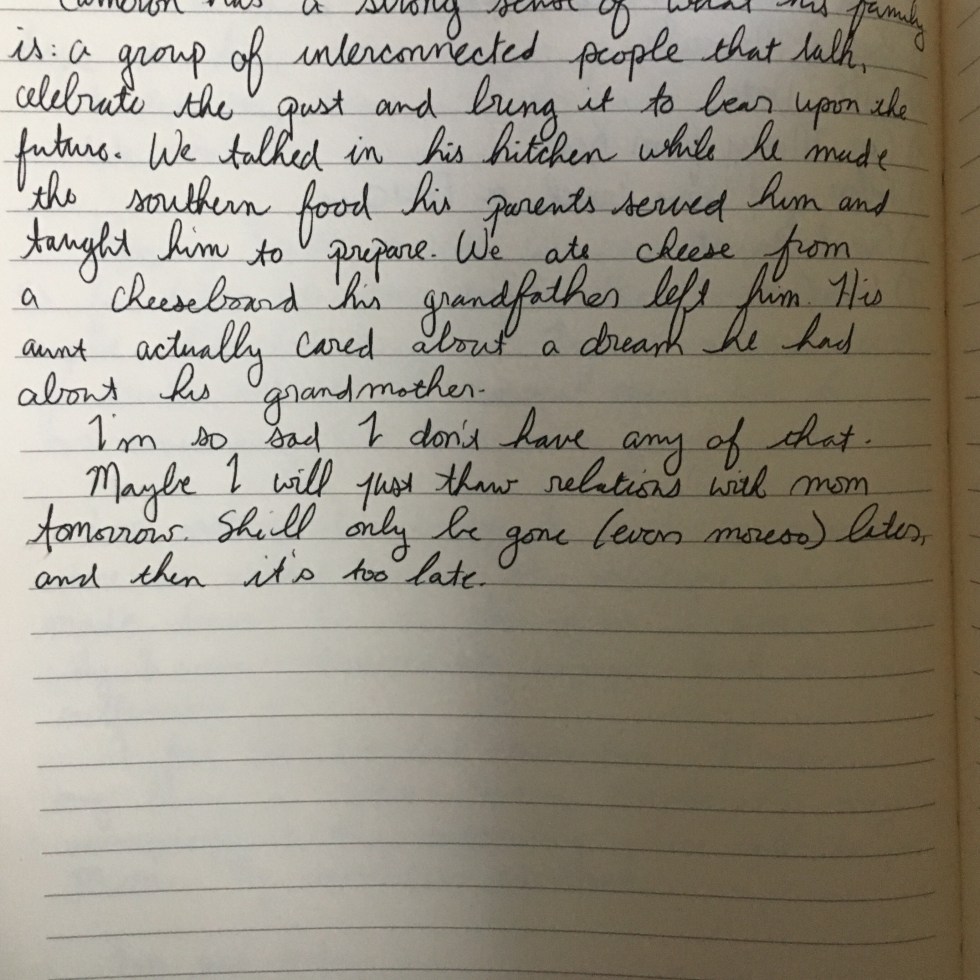 Cameron has a strong sense of what his family
is: a group of interconnected people that talk,
celebrate the past and bring it to bear upon the
future. We talked in his kitchen while he made
the southern food his parents served him and
taught him to prepare. We ate cheese from
a cheeseboard his grandfather left him. His
aunt actually cared about a dream he had
about his grandmother.
I'm so sad I don't have any of that.
Maybe I will just thaw relations with mom
tomorrow. She'll only be gone (even moreso) later,
and then it's too late.